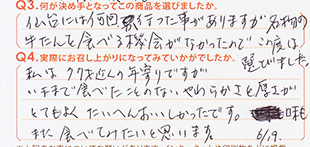 Q3.何が決め手となってこの商品を選びましたか。
仙台には何回か行った事がありますが名物の
牛たんを食べる機会がなかったのでこの度は
選びました。
Q4.実際にお召し上がりになってみていかがでしたか。
私は77才近くの年寄りですが
いままで食べたことのないやわらかさと厚さが
とてもよく たいへんおいしかったです。 味も
また食べてみたいと思います。 6/19.